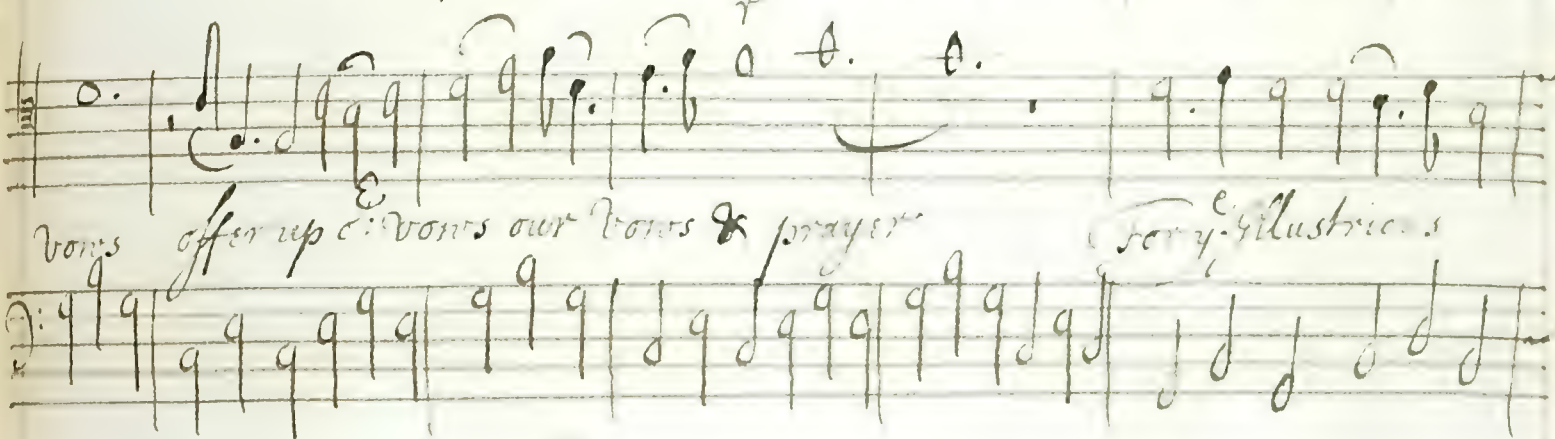 vows offer up o: vows our vows & prayer For yͤ Illustrious